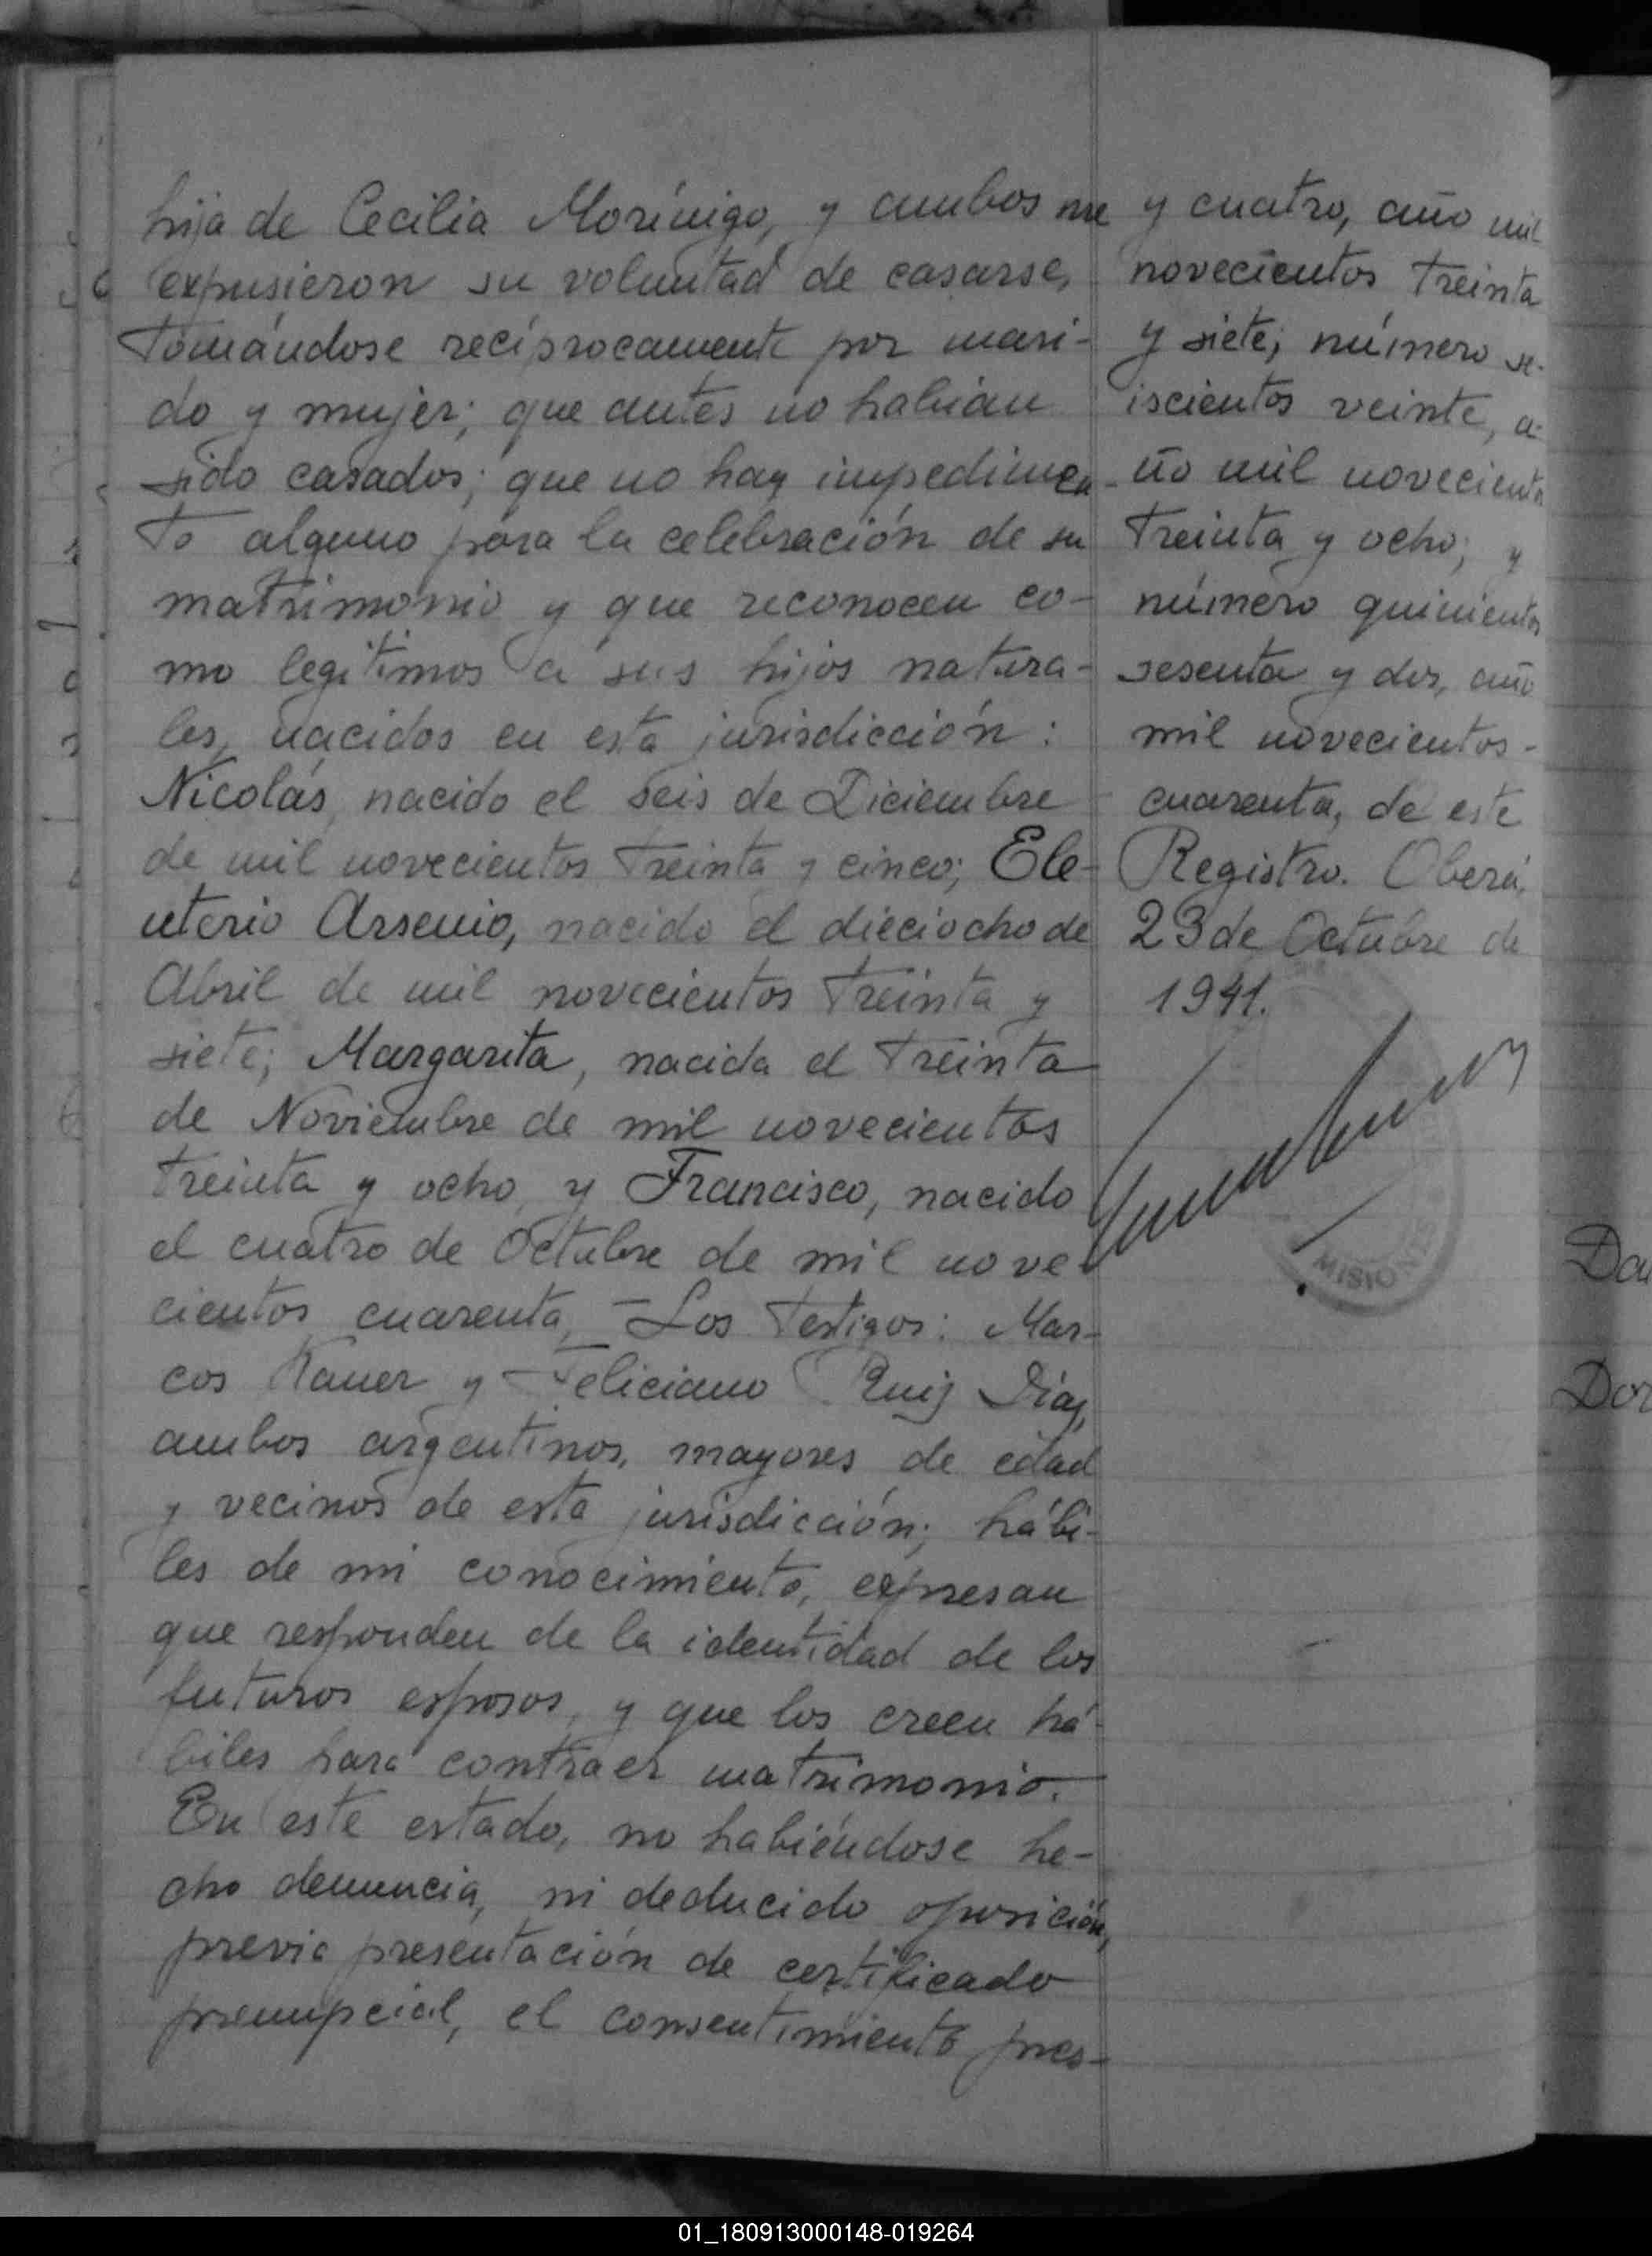 hija de Cecilia Morínigo, y ambos me
expusieron su voluntad de casarse,
tomándose recíprocamente por mari-
do y mujer; que antes no habían
sido casados; que no hay impedimen-
to alguno para la celebración de su
matrimonio y que reconocen co-
mo legítimos a sus hijos natura-
les, nacidos en esta jurisdicción:
Nicolás, nacido el seis de Diciembre
de mil novecientos treinta y cinco; Ele-
uterio Arsenio, nacido el dieciocho de
Abril de mil novecientos treinta y
siete; Margarita, nacida el treinta
de Noviembre de mil novecientos
treinta y ocho, y Francisco, nacido
el cuatro de Octubre de mil nove-
cientos cuarenta, - Los testigos: Mar-
cos y Feliciano Ruiz Díaz,
ambos argentinos, mayores de edad
y vecinos de esta jurisdicción; hábi-
les de mi conocimiento, expresan
que responden de la identidad de los
futuros esposos, y que los creen há-
biles para contraer matrimonio.
En este estado, no habiéndose he-
cho denuncia, ni deducido oposición,
previa presentación de certificado
prenupcial, el consentimiento pres-
y cuatro, año mil
novecientos treinta
y siete; número se-
iscientos veinte, a-
ño mil novecientos
treinta y ocho; y
número quinientos
sesenta y dos, año
mil novecientos -
cuarenta, de este
Registro. Oberá,
23 de Octubre de
1941.
MISIONES
Dor
01_180913000148-019264